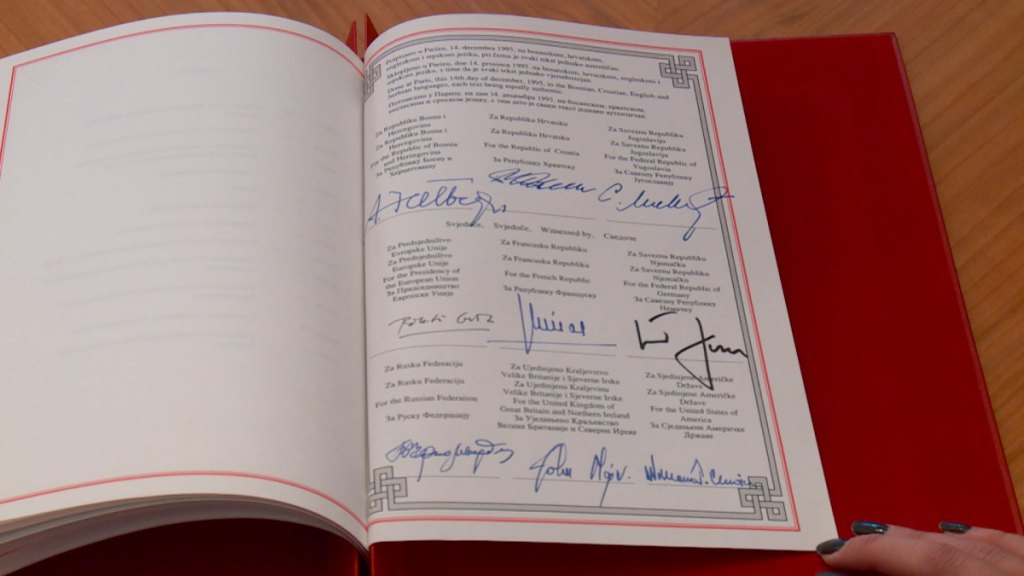 Potpisano u Parizu, 14. decembra 1995. na bosanskom, hrvatskom,
engleskom i srpskom jeziku, pri čemu je svaki tekst jednako autentičan.
Sklopljeno u Parizu, dne 14. prosinca 1995. na bosanskom, hrvatskom, engleskom i
srpskom jeziku, s time da je svaki tekst jednako vjerodostojan.
Done at Paris, this 14th day of december, 1995, in the Bosnian, Croatian, English and
Serbian languages, each text being equally authentic.
Потписано у Паризу, на дан 14. децембра 1995. на босанском, хрватском,
енглеском и српском језику, с тим што је сваки текст једнако аутентичан.
Za Republiku Bosnu i
Hercegovinu
Za Republiku Bosnu i
Hercegovinu
For the Republic of Bosnia
and Herzegovina
За Републику Босну и
Херцеговину
Za Republiku Hrvatsku
Za Republiku Hrvatsku
For the Republic of Croatia
За Републику Хрватску
Za Saveznu Republiku
Jugoslaviju
Za Saveznu Republiku
Jugoslaviju
For the Federal Republic of
Yugoslavia
За Савезну Републику
Југославију
Svjedoče, Svjedoče, Witnessed by, Сведоче
Za Predsjedništvo
Evropske Unije
Za Predsjedništvo
Europske Unije
For the Presidency of
the European Union
За Председништво
Европске Уније
Za Francusku Republiku
Za Francusku Republiku
For the French Republic
За Републику Француску
Za Saveznu Republiku
Njemačku
Za Saveznu Republiku
Njemačku
For the Federal Republic of
Germany
За Савезну Републику
Немачку
Za Rusku Federaciju
Za Rusku Federaciju
For the Russian Federation
За Руску Федерацију
Za Ujedinjeno Kraljevstvo
Velike Britanije i Sjeverne Irske
Za Ujedinjenu Kraljevinu
Velike Britanije i Sjeverne Irske
For the United Kingdom of
Great Britain and Northern Ireland
За Уједињено Краљевство
Велике Британије и Северне Ирске
Za Sjedinjene Američke
Države
Za Sjedinjene Američke
Države
For the United States of
America
За Сједињене Америчке
Државе
John Major